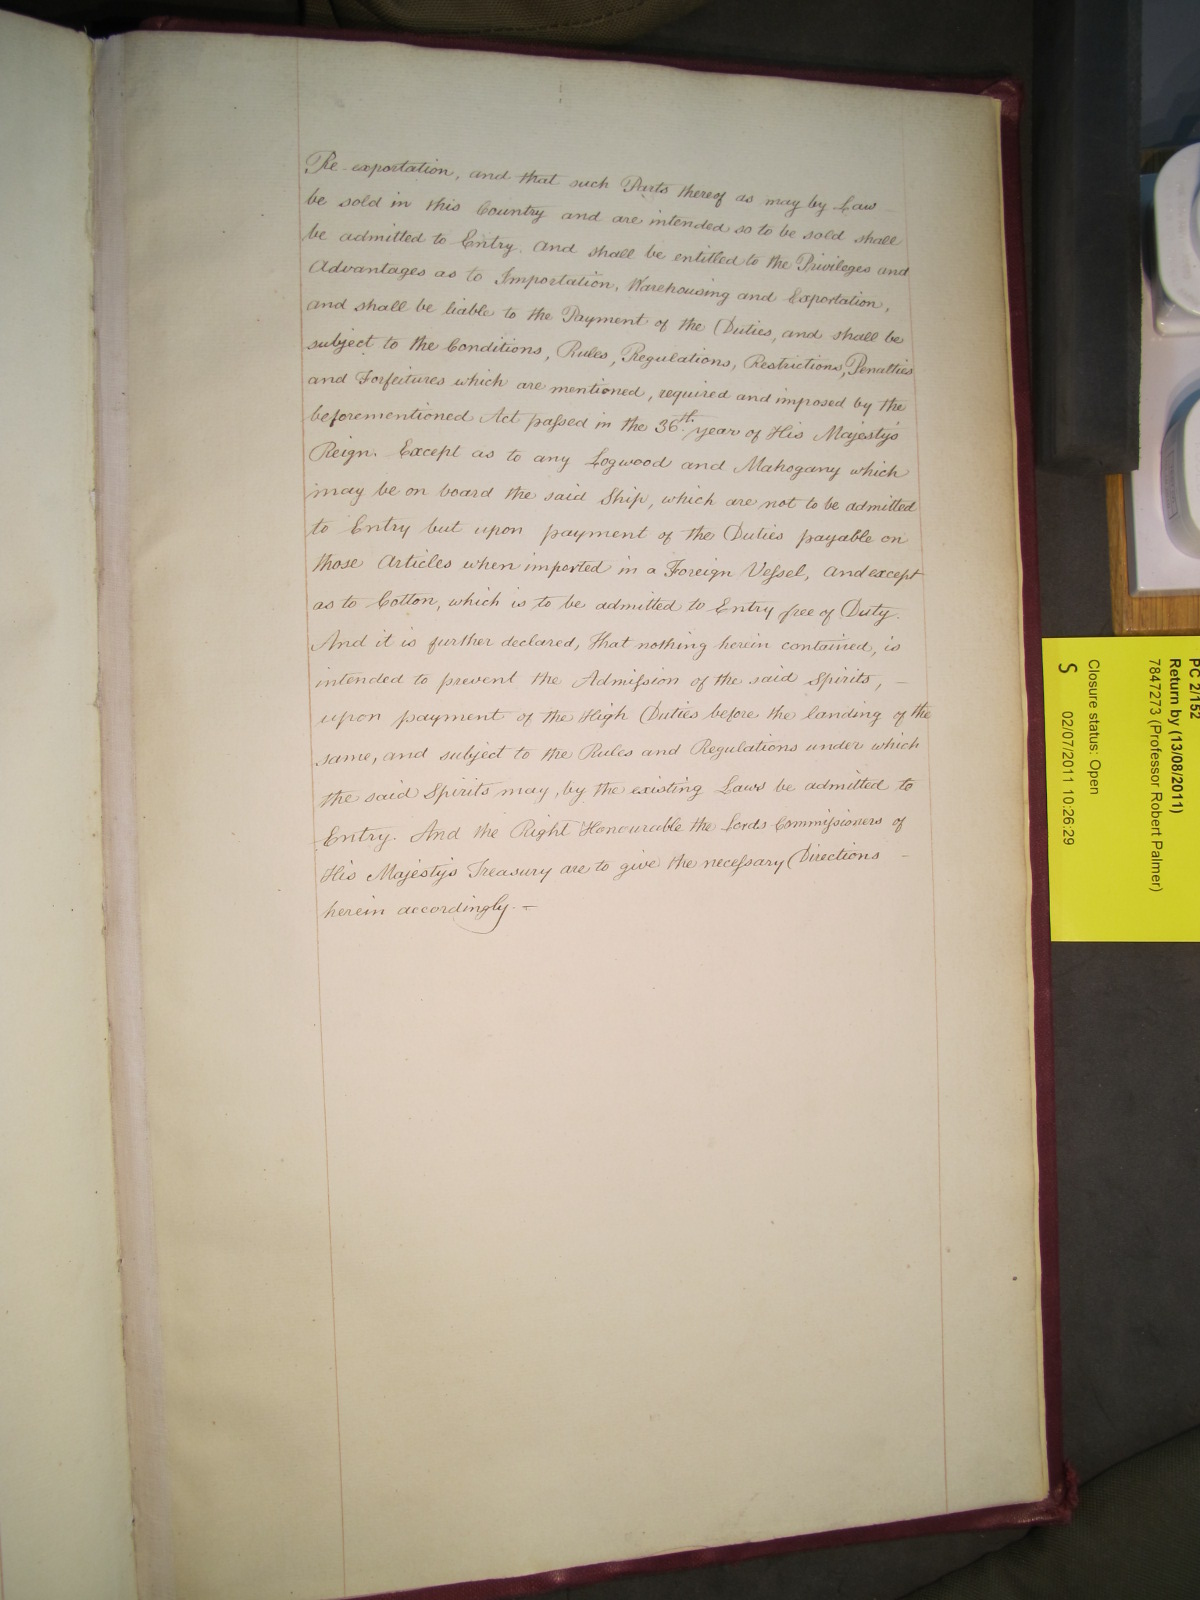 Re-exportation, and that such Parts thereof as may by Law
be sold in this Country and are intended so to be sold shall
be admitted to Entry. And shall be entitled to the Privileges and
Advantages as to Importation, Warehousing and Exportation,
and shall be liable to the Payment of the Duties, and shall be
subject to the Conditions, Rules, Regulations, Restrictions, Penalties
and Forfeitures which are mentioned, required and imposed by the
beforementioned Act passed in the 36th. year of His Majesty's
Reign. Except as to any Logwood and Mahogany which
may be on board the said Ship, which are not to be admitted
to Entry but upon payment of the Duties payable on
those Articles when imported in a Foreign Vessel, And except
as to Cotton, which is to be admitted to Entry free of Duty.
And it is further declared, that nothing herein contained, is
intended to prevent the Admission of the said Spirits, –
upon payment of the High Duties before the landing of the
same, and subject to the Rules and Regulations under which
the said Spirits may, by the existing Laws be admitted to
Entry. And the Right Honourable the Lords Commissioners of
His Majesty's Treasury are to give the necessary Directions –
herein accordingly. –
PC 2/152
Return by (13/08/2011)
7847273 (Professor Robert Palmer)
Closure status: Open
S 02/07/2011 10:26:29